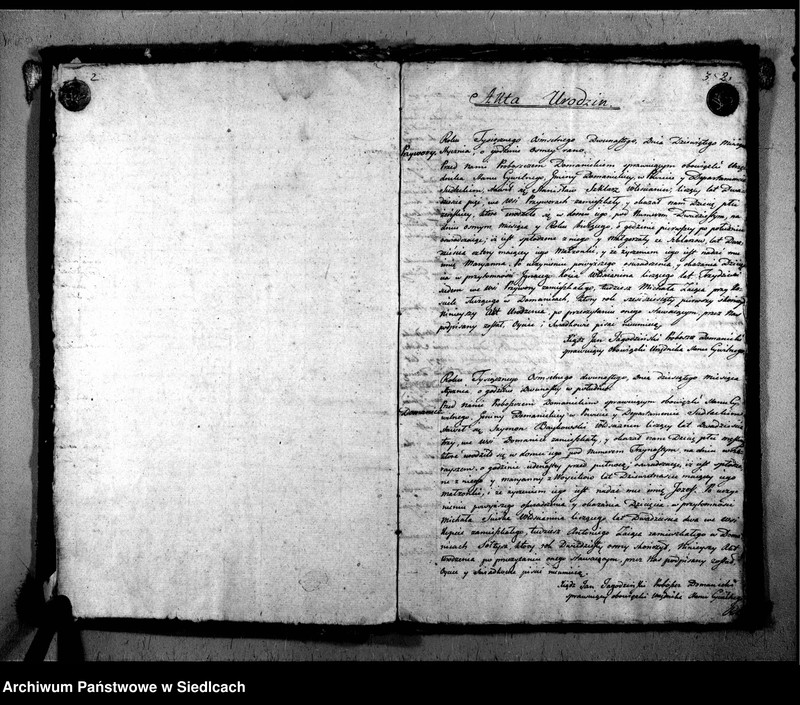 2
3 2.
Akta Urodzin.
Roku Tysiącznego Osmsetnego Dwunastego, Dnia Dziewiątego Miesiąca
Przywory Stycznia o godzinie osmey rano.
Przed Nami Proboszczem Domanickim sprawuiącym obowiązki Urzę-
dnika Stanu Cywilnego, Gminy Domanickiey, w Powiecie y Departamencie
Siedleckim, stawił się Stanisław Szklarz Włościanin, liczący lat Dwa-
dzieścia pięć we wsi Przyworach zamieszkały, y okazał nam Dziecię płci
żeńskiey, które urodziło się w domu iego, pod Numerem Dwudziestym, na
dniu osmym Miesiąca y Roku bieżącego, o godzinie pierwszey po południu
oświadczaiąc, iż iest spłodzone z niego y Małgorzaty ze lat Dwa-
dzieścia cztery maiącey iego Małżonki, y że życzeniem iego iest nadać mu
imię Maryanna. Po uczynieniu powyższego oświadczenia, y okazaniu Dziecię-
cia w przytomności Ignacego Włościanina liczącego lat Trzydzieści
siedem, we wsi Przywory zamieszkałego, tudzież Michała Zaiąca przy Ko-
ściele w Domanicach, który rok sześćdziesiąty pierwszy skończył
Ninieyszy Akt Urodzenia, po przeczytaniu onego Stawaiącym, przez Nas
podpisany został, Oyciec i Świadkowie pisać nieumieią.
Xiądz Jan Jagodziński Proboszcz Domanicki
sprawuiący Obowiązki Urzędnika Stanu Cywilnego
Roku Tysiącznego Osmsetnego dwunastego, Dnia dziesiątego Miesiąca
Stycznia o godzinie Dwunastey w południe.
Domanice Przed Nami Proboszczem Domanickim sprawuiącym obowiązki Stanu Cy-
wilnego, Gminy Domanickiey w Powiecie y Departamencie Siedleckim,
stawił się Szymon Włościanin liczący lat Dwadzieścia
trzy, we wsi Domanice zamieszkały, y okazał nam Dziecię płci męskiey
które urodziło się w domu iego pod Numerem Trzynastym, na dniu
o godzinie iedenastey przed północą, oświadczaiąc, iż iest spłodzo-
ne z niego y Maryanny z lat Dziewiętnaście maiącey iego
Małżonki, i że życzeniem iego iest nadać mu imię Jozef. Po uczy-
nieniu powyższego oświadczenia y okazaniu Dziecięcia w przytomności
Michała Włościanina liczącego lat Dwadzieścia dwa we wsi
zamieszkałego, tudzież Antoniego Zaiąca zamieszkałego w Doma-
nicach który rok Dwudziesty osmy skończył, Ninieyszy Akt
Urodzenia po przeczytaniu onego Stawaiącym, przez Nas podpisany został
Oyciec y Świadkowie pisać nieumieią.
Xiądz Jan Jagodziński Proboszcz Domanicki
sprawuiący obowiązki Urzędnika Stanu Cywilnego
Archiwum Państwowe w Siedlcach